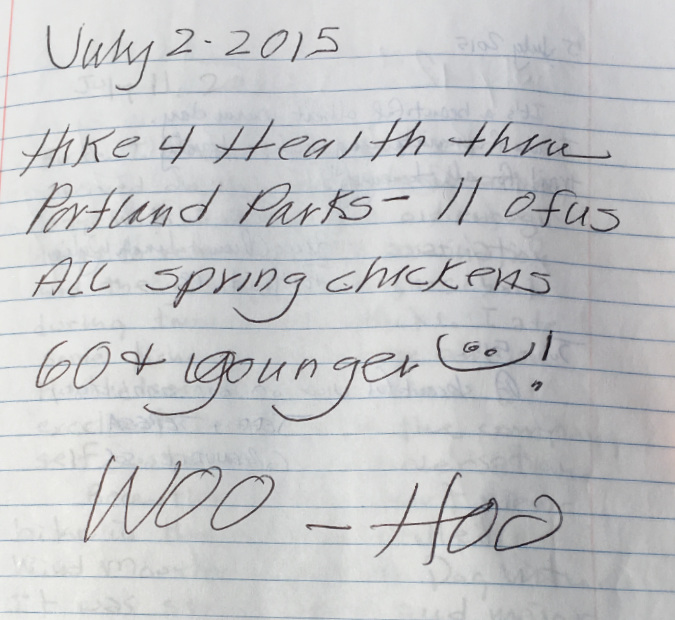 July 2-2015
Hike 4 Health thru
Portland Parks- 11 of us
All spring chickens
60 & younger !
WOO - HOO